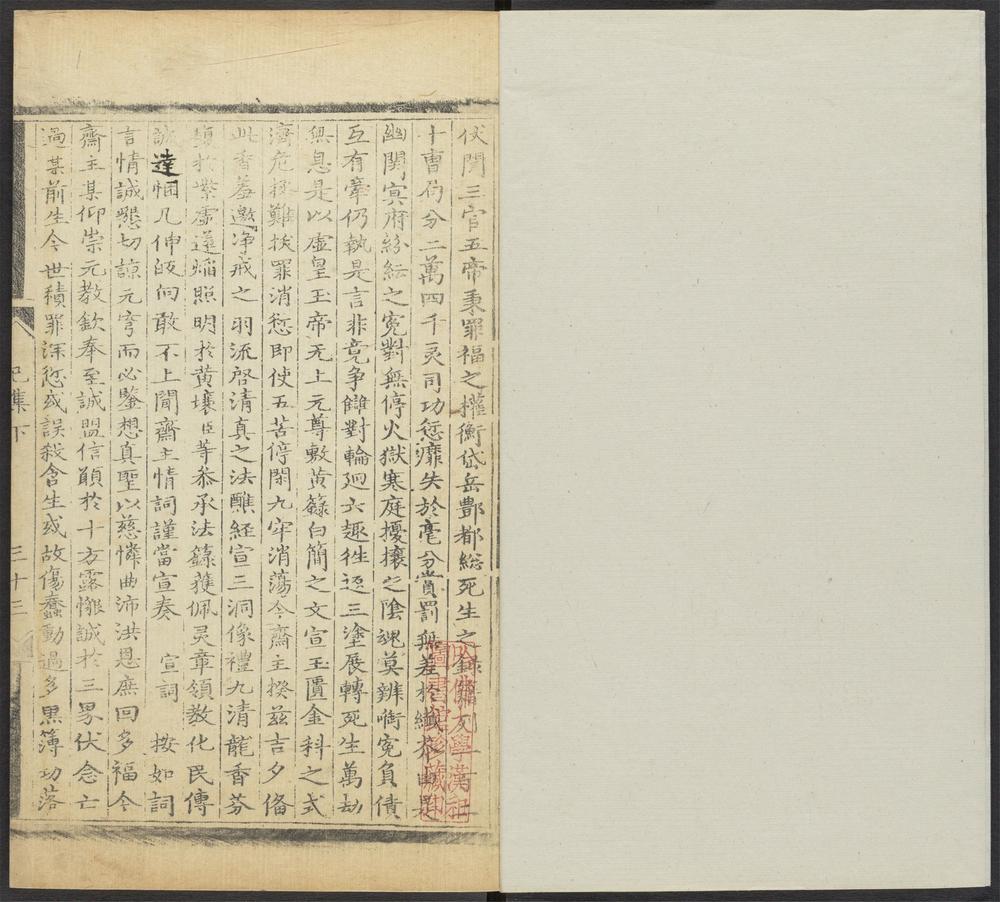 伏聞三官五帝秉罪福之權衡岱岳酆都総死生之錄籍列二十
十曹局分二萬四千灵司功愆靡失於毫分賞罰無差於纖芥
幽関㝠府紛紜之寃對無停火獄寒庭擾攘之陰魂莫辨啣寃負債
互有牽仍執是言非竞争讎對輪廻六趣徃返三塗展轉死生萬劫
無息是以虛皇玉帝无上元尊敷黃籙白簡之文宣玉匱金科之式
濟危拯難拔罪消愆即使五苦停閑九牢消蕩今齋主揆兹吉夕俻
此香羞邀净戒之羽流啓清真之法醮経宣三洞像禮九清龍香芬
於紫虛蓮熖照明於黃壤臣等忝承法籙獲佩灵章領教化民傳
誠達悃凡伸皈向敢不上聞齋主情詞謹當宣奏　宣詞　按如詞
言情誠懇切諒元穹而必鑒想真聖以慈憐曲沛洪恩庶回多福今
齋主某仰崇元教欽奉至誠盟信願於十方露懺誠於三界伏念亡
過某前生今世積罪深愆或誤殺含生或故傷蠢動過多黒簿功落
集下
三十三
哈佛大學漢和
圖書館珍藏印